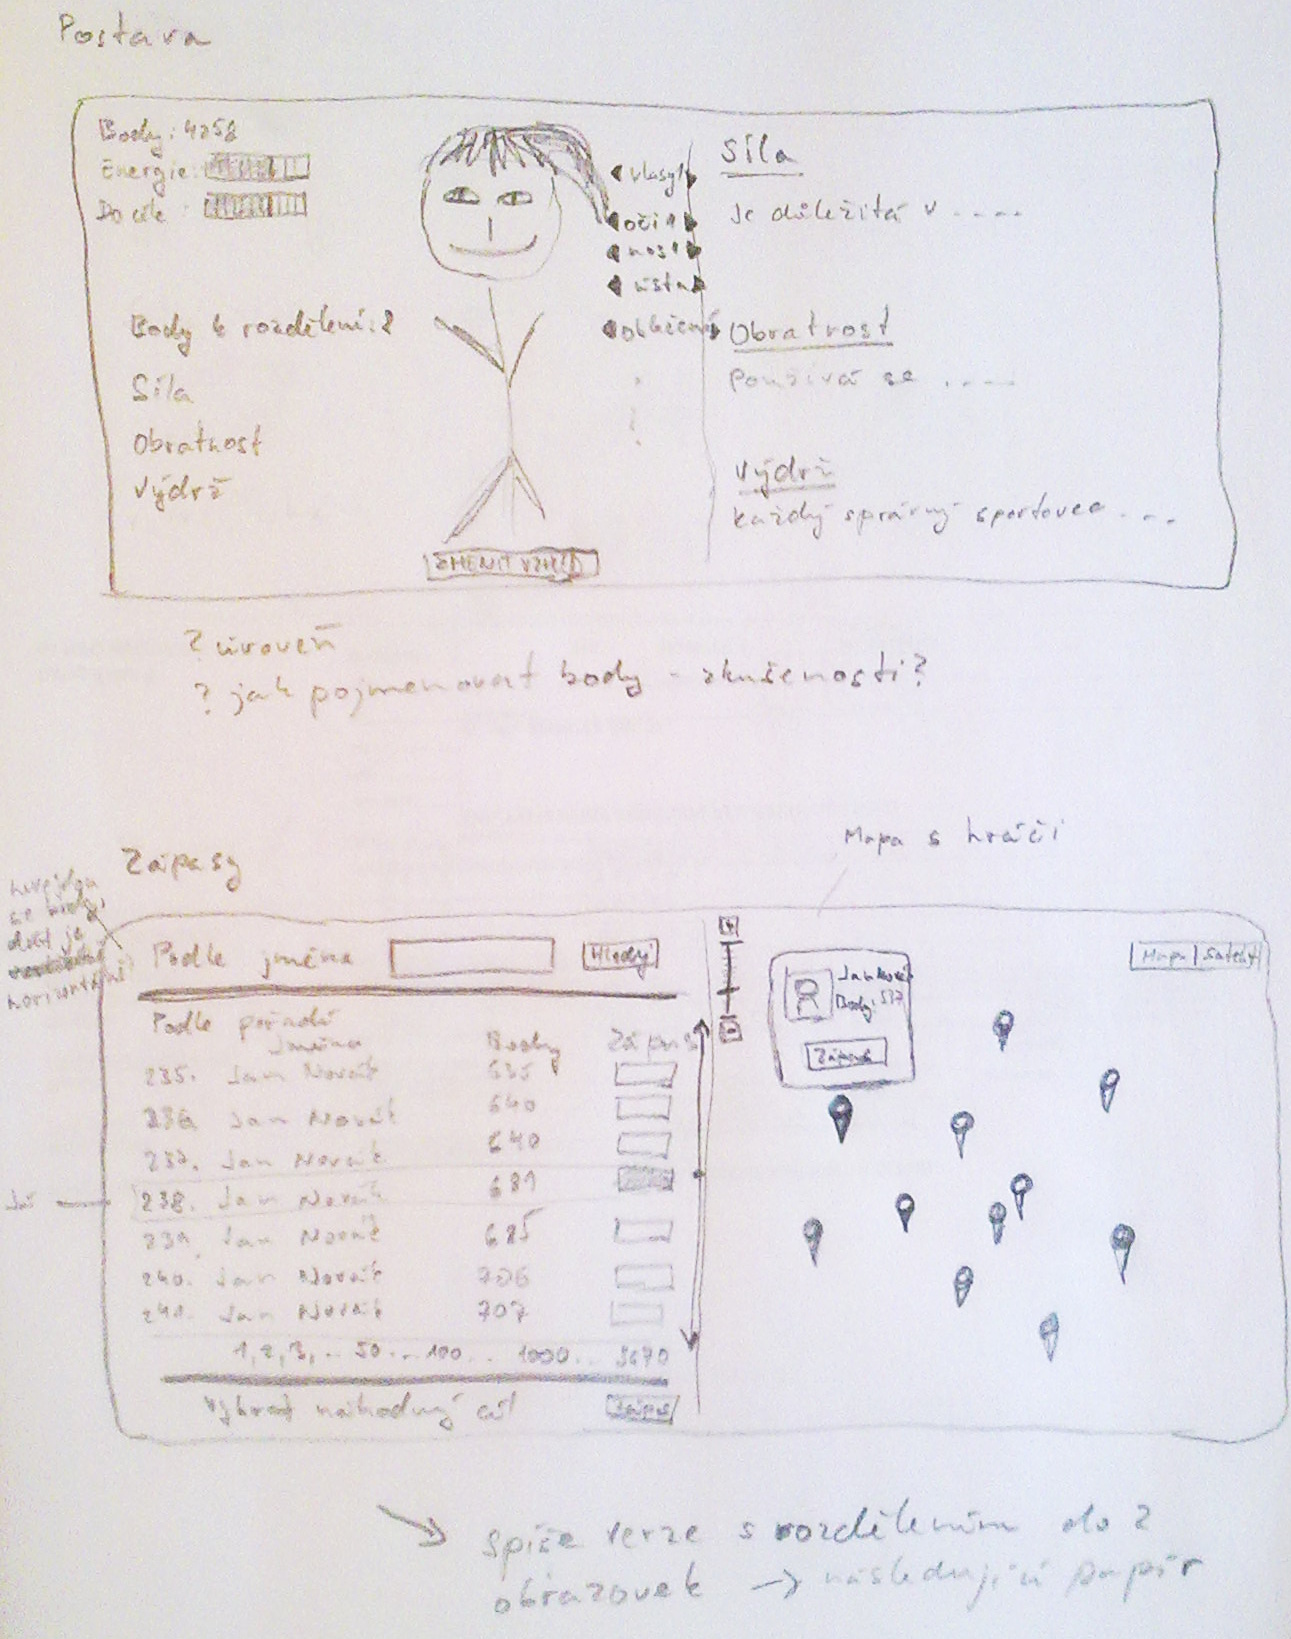 Postava
Body: 4258
Energie:
Do cíle:
vlasy
oči
nos
ústa
oblečení
Body k rozdělení: 2
Síla
Obratnost
Výdrž
ZMĚNIT VZHLED
Síla
Je důležitá v ....
Obratnost
Používá se ....
Výdrž
Každý správný sportovec ...
? úroveň
? jak pojmenovat body - zkušenosti?
Mapa s hráči
Zápasy
se body,
je
horizontální
Podle jména
Hledej
Podle pořadí
Jméno Body Zápas
235. Jan Novák 635
236. Jan Novák 640
237. Jan Novák 640
238. Jan Novák 681
239. Jan Novák 685
240. Jan Novák 706
241. Jan Novák 707
1, 2, 3, .. 50 ... 100 .. 1000 .. 3670
Vybrat náhodný cíl Zápas
Já
+
-
Jan Novák
Body: 537
Zápas
Mapa Satelit
spíše verze s rozdělením do 2
obrazovek → následující papír